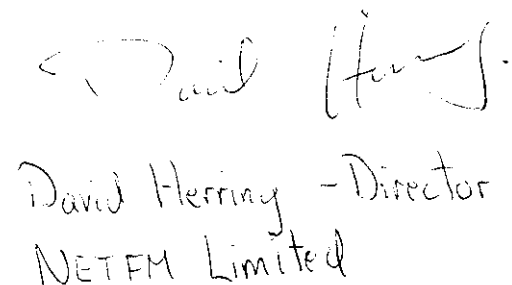 David Herring.
David Herring - Director
NETFM Limited